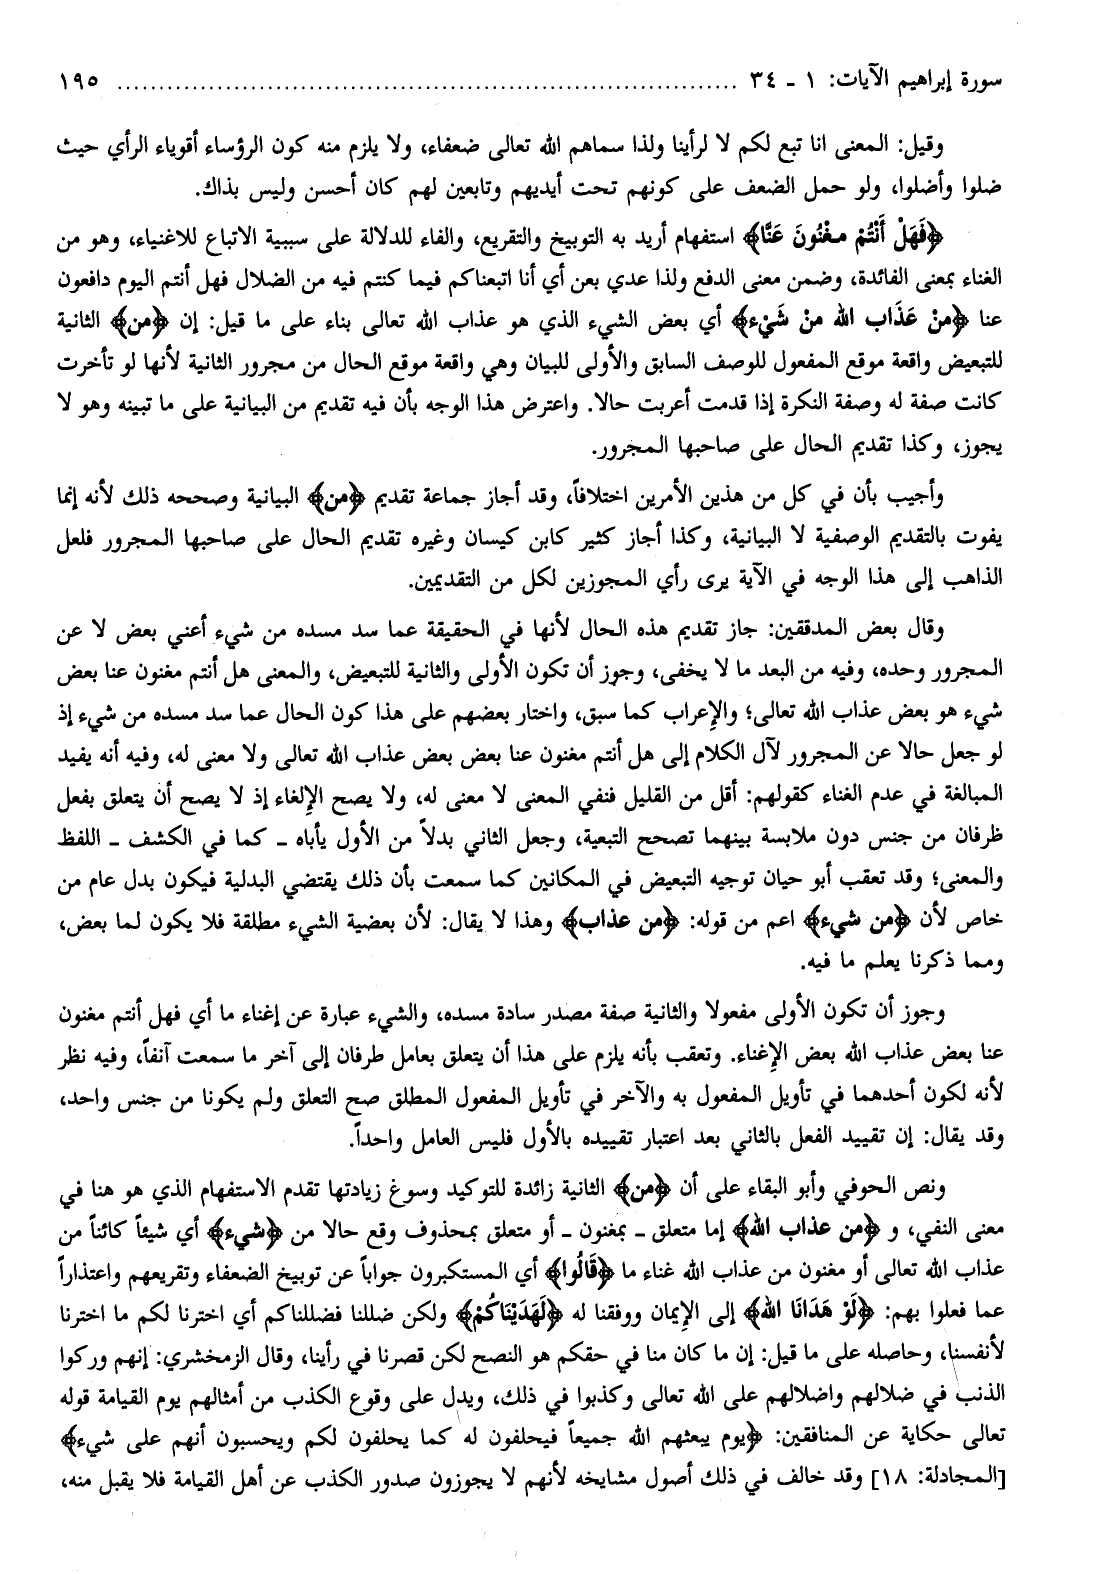 سورة إبراهيم الآيات: ١ ـ ٣٤ ........................................................................... ١٩٥
وقيل: المعنى انا تبع لكم لا لرأينا ولذا سماهم الله تعالى ضعفاء، ولا يلزم منه كون الرؤساء أقوياء الرأي حيث
ضلوا وأضلوا، ولو حمل الضعف على كونهم تحت أيديهم وتابعين لهم كان أحسن وليس بذاك.
﴿فَهَلْ أَنْتُمْ مغْنُونَ عَنَّا﴾ استفهام أريد به التوبيخ والتقريع، والفاء للدلالة على سببية الاتباع للاغنياء، وهو من
الغناء بمعنى الفائدة، وضمن معنى الدفع ولذا عدي بعن أي أنا اتبعناكم فيما كنتم فيه من الضلال فهل أنتم اليوم دافعون
عنا ﴿منْ عَذَاب الله منْ شَيْء﴾ أي بعض الشيء الذي هو عذاب الله تعالى بناء على ما قيل: إن ﴿من﴾ الثانية
للتبعيض واقعة موقع المفعول للوصف السابق والأولى للبيان وهي واقعة موقع الحال من مجرور الثانية لأنها لو تأخرت
كانت صفة له وصفة النكرة إذا قدمت أعربت حالا. واعترض هذا الوجه بأن فيه تقديم من البيانية على ما تبينه وهو لا
يجوز، وكذا تقديم الحال على صاحبها المجرور.
وأجيب بأن في كل من هذين الأمرين اختلافاً، وقد أجاز جماعة تقديم ﴿من﴾ البيانية وصححه ذلك لأنه إنما
يفوت بالتقديم الوصفية لا البيانية، وكذا أجاز كثير كابن كيسان وغيره تقديم الحال على صاحبها المجرور فلعل
الذاهب إلى هذا الوجه في الآية يرى رأي المجوزين لكل من التقديمين.
وقال بعض المدققين: جاز تقديم هذه الحال لأنها في الحقيقة عما سد مسده من شيء أعني بعض لا عن
المجرور وحده، وفيه من البعد ما لا يخفى، وجوز أن تكون الأولى والثانية للتبعيض، والمعنى هل أنتم مغنون عنا بعض
شيء هو بعض عذاب الله تعالى؛ والإعراب كما سبق، واختار بعضهم على هذا كون الحال عما سد مسده من شيء إذ
لو جعل حالا عن المجرور لآل الكلام إلى هل أنتم مغنون عنا بعض بعض عذاب الله تعالى ولا معنى له، وفيه أنه يفيد
المبالغة في عدم الغناء كقولهم: أقل من القليل فنفي المعنى لا معنى له، ولا يصح الإلغاء إذ لا يصح أن يتعلق بفعل
ظرفان من جنس دون ملابسة بينهما تصحح التبعية، وجعل الثاني بدلاً من الأول يأباه ـ كما في الكشف ـ اللفظ
والمعنى؛ وقد تعقب أبو حيان توجيه التبعيض في المكانين كما سمعت بأن ذلك يقتضي البدلية فيكون بدل عام من
خاص لأن ﴿من شيء﴾ اعم من قوله: ﴿من عذاب﴾ وهذا لا يقال: لأن بعضية الشيء مطلقة فلا يكون لما بعض،
ومما ذكرنا يعلم ما فيه.
وجوز أن تكون الأولى مفعولا والثانية صفة مصدر سادة مسده، والشيء عبارة عن إغناء ما أي فهل أنتم مغنون
عنا بعض عذاب الله بعض الإغناء. وتعقب بأنه يلزم على هذا أن يتعلق بعامل ظرفان إلى آخر ما سمعت آنفاً، وفيه نظر
لأنه لكون أحدهما في تأويل المفعول به والآخر في تأويل المفعول المطلق صح التعلق ولم يكونا من جنس واحد،
وقد يقال: إن تقييد الفعل بالثاني بعد اعتبار تقييده بالأول فليس العامل واحداً.
ونص الحوفي وأبو البقاء على أن ﴿من﴾ الثانية زائدة للتوكيد وسوغ زيادتها تقدم الاستفهام الذي هو هنا في
معنى النفي، و ﴿من عذاب الله﴾ إما متعلق ـ بمغنون ـ أو متعلق بمحذوف وقع حالا من ﴿شيء﴾ أي شيئاً كائناً من
عذاب الله تعالى أو مغنون من عذاب الله غناء ما ﴿قَالُوا﴾ أي المستكبرون جواباً عن توبيخ الضعفاء وتقريعهم واعتذاراً
عما فعلوا بهم: ﴿لَوْ هَدَانَا الله﴾ إلى الإيمان ووفقنا له ﴿لَهَدَيْنَاكُمْ﴾ ولكن ضللنا فضللناكم أي اخترنا لكم ما اخترنا
لأنفسنا، وحاصله على ما قيل: إن ما كان منا في حقكم هو النصح لكن قصرنا في رأينا، وقال الزمخشري: إنهم وركوا
الذنب في ضلالهم واضلالهم على الله تعالى وكذبوا في ذلك، ويدل على وقوع الكذب من أمثالهم يوم القيامة قوله
تعالى حكاية عن المنافقين: ﴿يوم يبعثهم الله جميعاً فيحلفون له كما يحلفون لكم ويحسبون أنهم على شيء﴾
[المجادلة: ١٨] وقد خالف في ذلك أصول مشايخه لأنهم لا يجوزون صدور الكذب عن أهل القيامة فلا يقبل منه،